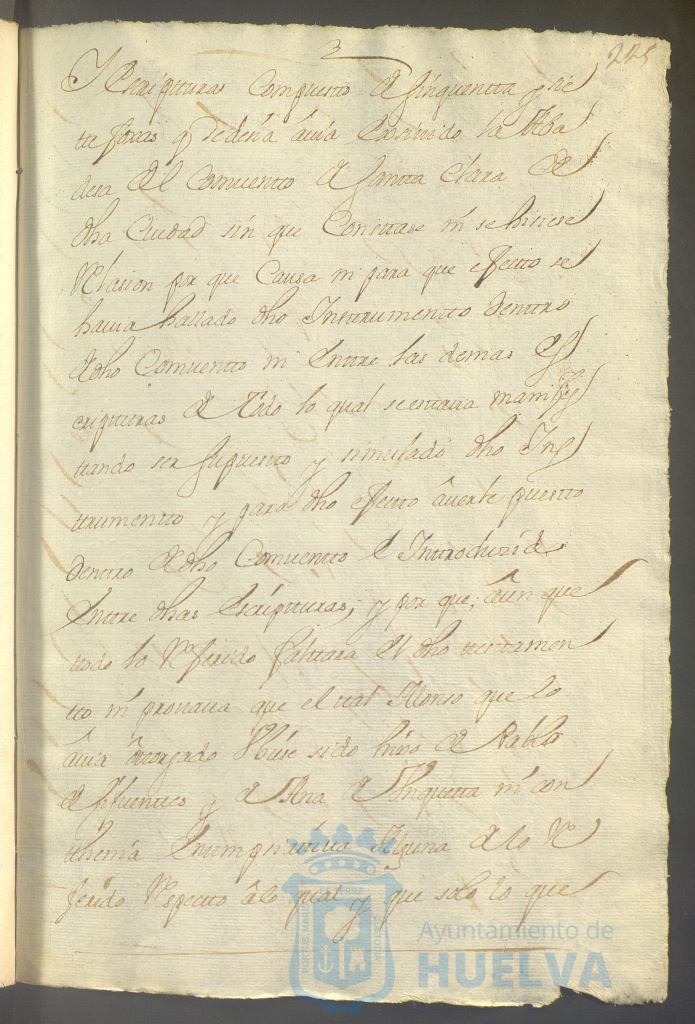 3
245
Y Escripturas Compuesto de sinquentta y sie
tte foxas q se desia avia Exsivido la Aba
desa del Comvento de Santta Clara de
dha Ciudad sin que Constase ni se hisiese
Relasion por que Causa ni para que efecto se
havia hallado dho Instrumento Denttro
de dho Comvento ni Enttre las demas Es
cripturas de todo lo qual se estava manifes
tando ser supuesto y simulado dho Ins
trumentto y para dho efecto averle puesto
Denttro de dho Comvento e Introduzido
Enttre dhas Escripturas, y por que, aun que
ttodo lo Referido faltara El dho testamen
tto ni provava que el tal Alonso que lo
avia otorgado Vbiese sido hijo de Pablo
de fuentes y de Ana de ni con
thenia Enumpnativa Alguna de lo Re
ferido Respecto a lo qual y que solo lo que
Ayuntamiento de
HUELVA